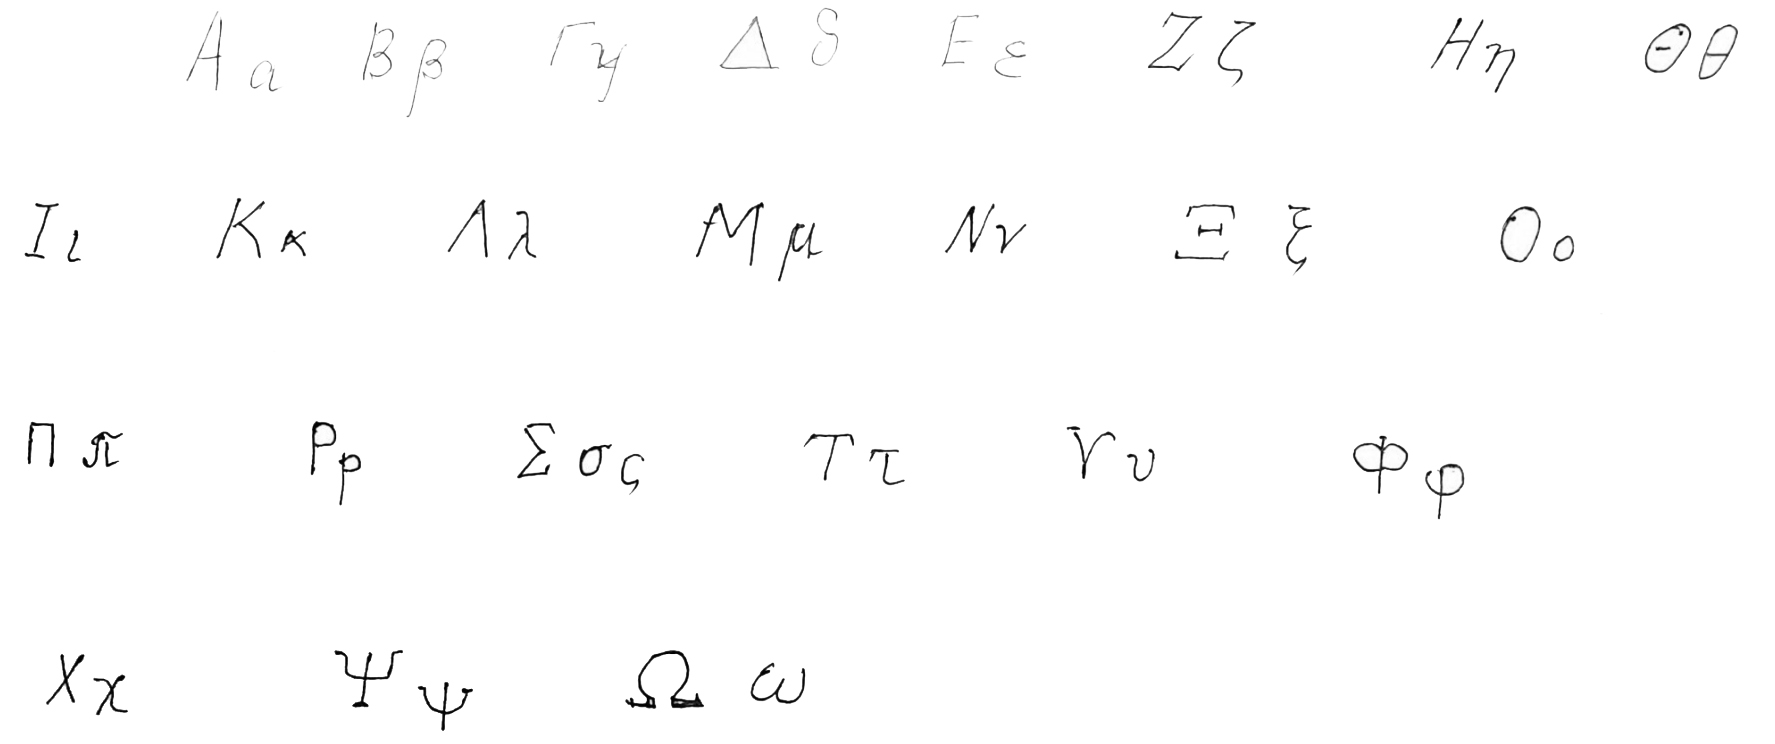 Αα Ββ Γγ Δδ Εε Ζζ Ηη Θθ
Ιι Κκ Λλ Μμ Νν Ξξ Οο
Ππ Ρρ Σσς Ττ Υυ Φφ
Χχ Ψψ Ωω